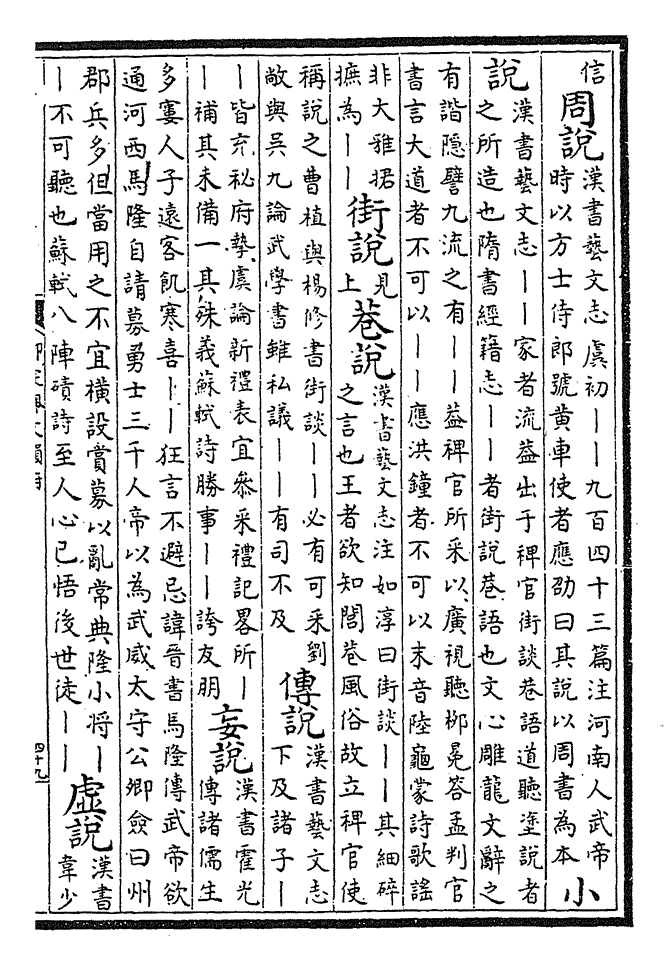 信
周說
漢書藝文志虞初——九百四十三篇注河南人武帝
時以方士侍郎號黃車使者應劭曰其說以周書為本
小
說
漢書藝文志——家者流蓋出于稗官街談巷語道聽塗說者
之所造也隋書經籍志——者街說巷語也文心雕龍文辭之
有諧隱譬九流之有——蓋稗官所采以廣視聽柳冕答孟判官
書言大道者不可以——應洪鐘者不可以末音陸龜蒙詩歌謠
非大雅捃
摭為——
街說
見
上
巷說
漢書藝文志注如淳曰街談——其細碎
之言也王者欲知閭巷風俗故立稗官使
稱說之曹植與楊修書街談——必有可采劉
敞與吳九論武學書雖私議——有司不及
傳說
漢書藝文志
下及諸子—
—皆充祕府摯虞論新禮表宜參采禮記畧所—
—補其未備一其殊義蘇軾詩勝事——誇友朋
妄說
漢書霍光
傳諸儒生
多窶人子遠客飢寒喜——狂言不避忌諱晉書馬隆傳武帝欲
通河西馬隆自請募勇士三千人帝以為武威太守公卿僉曰州
郡兵多但當用之不宜橫設賞募以亂常典隆小將—
—不可聽也蘇軾八陣磧詩至人心已悟後世徒——
虛說
漢書
韋少
四十九